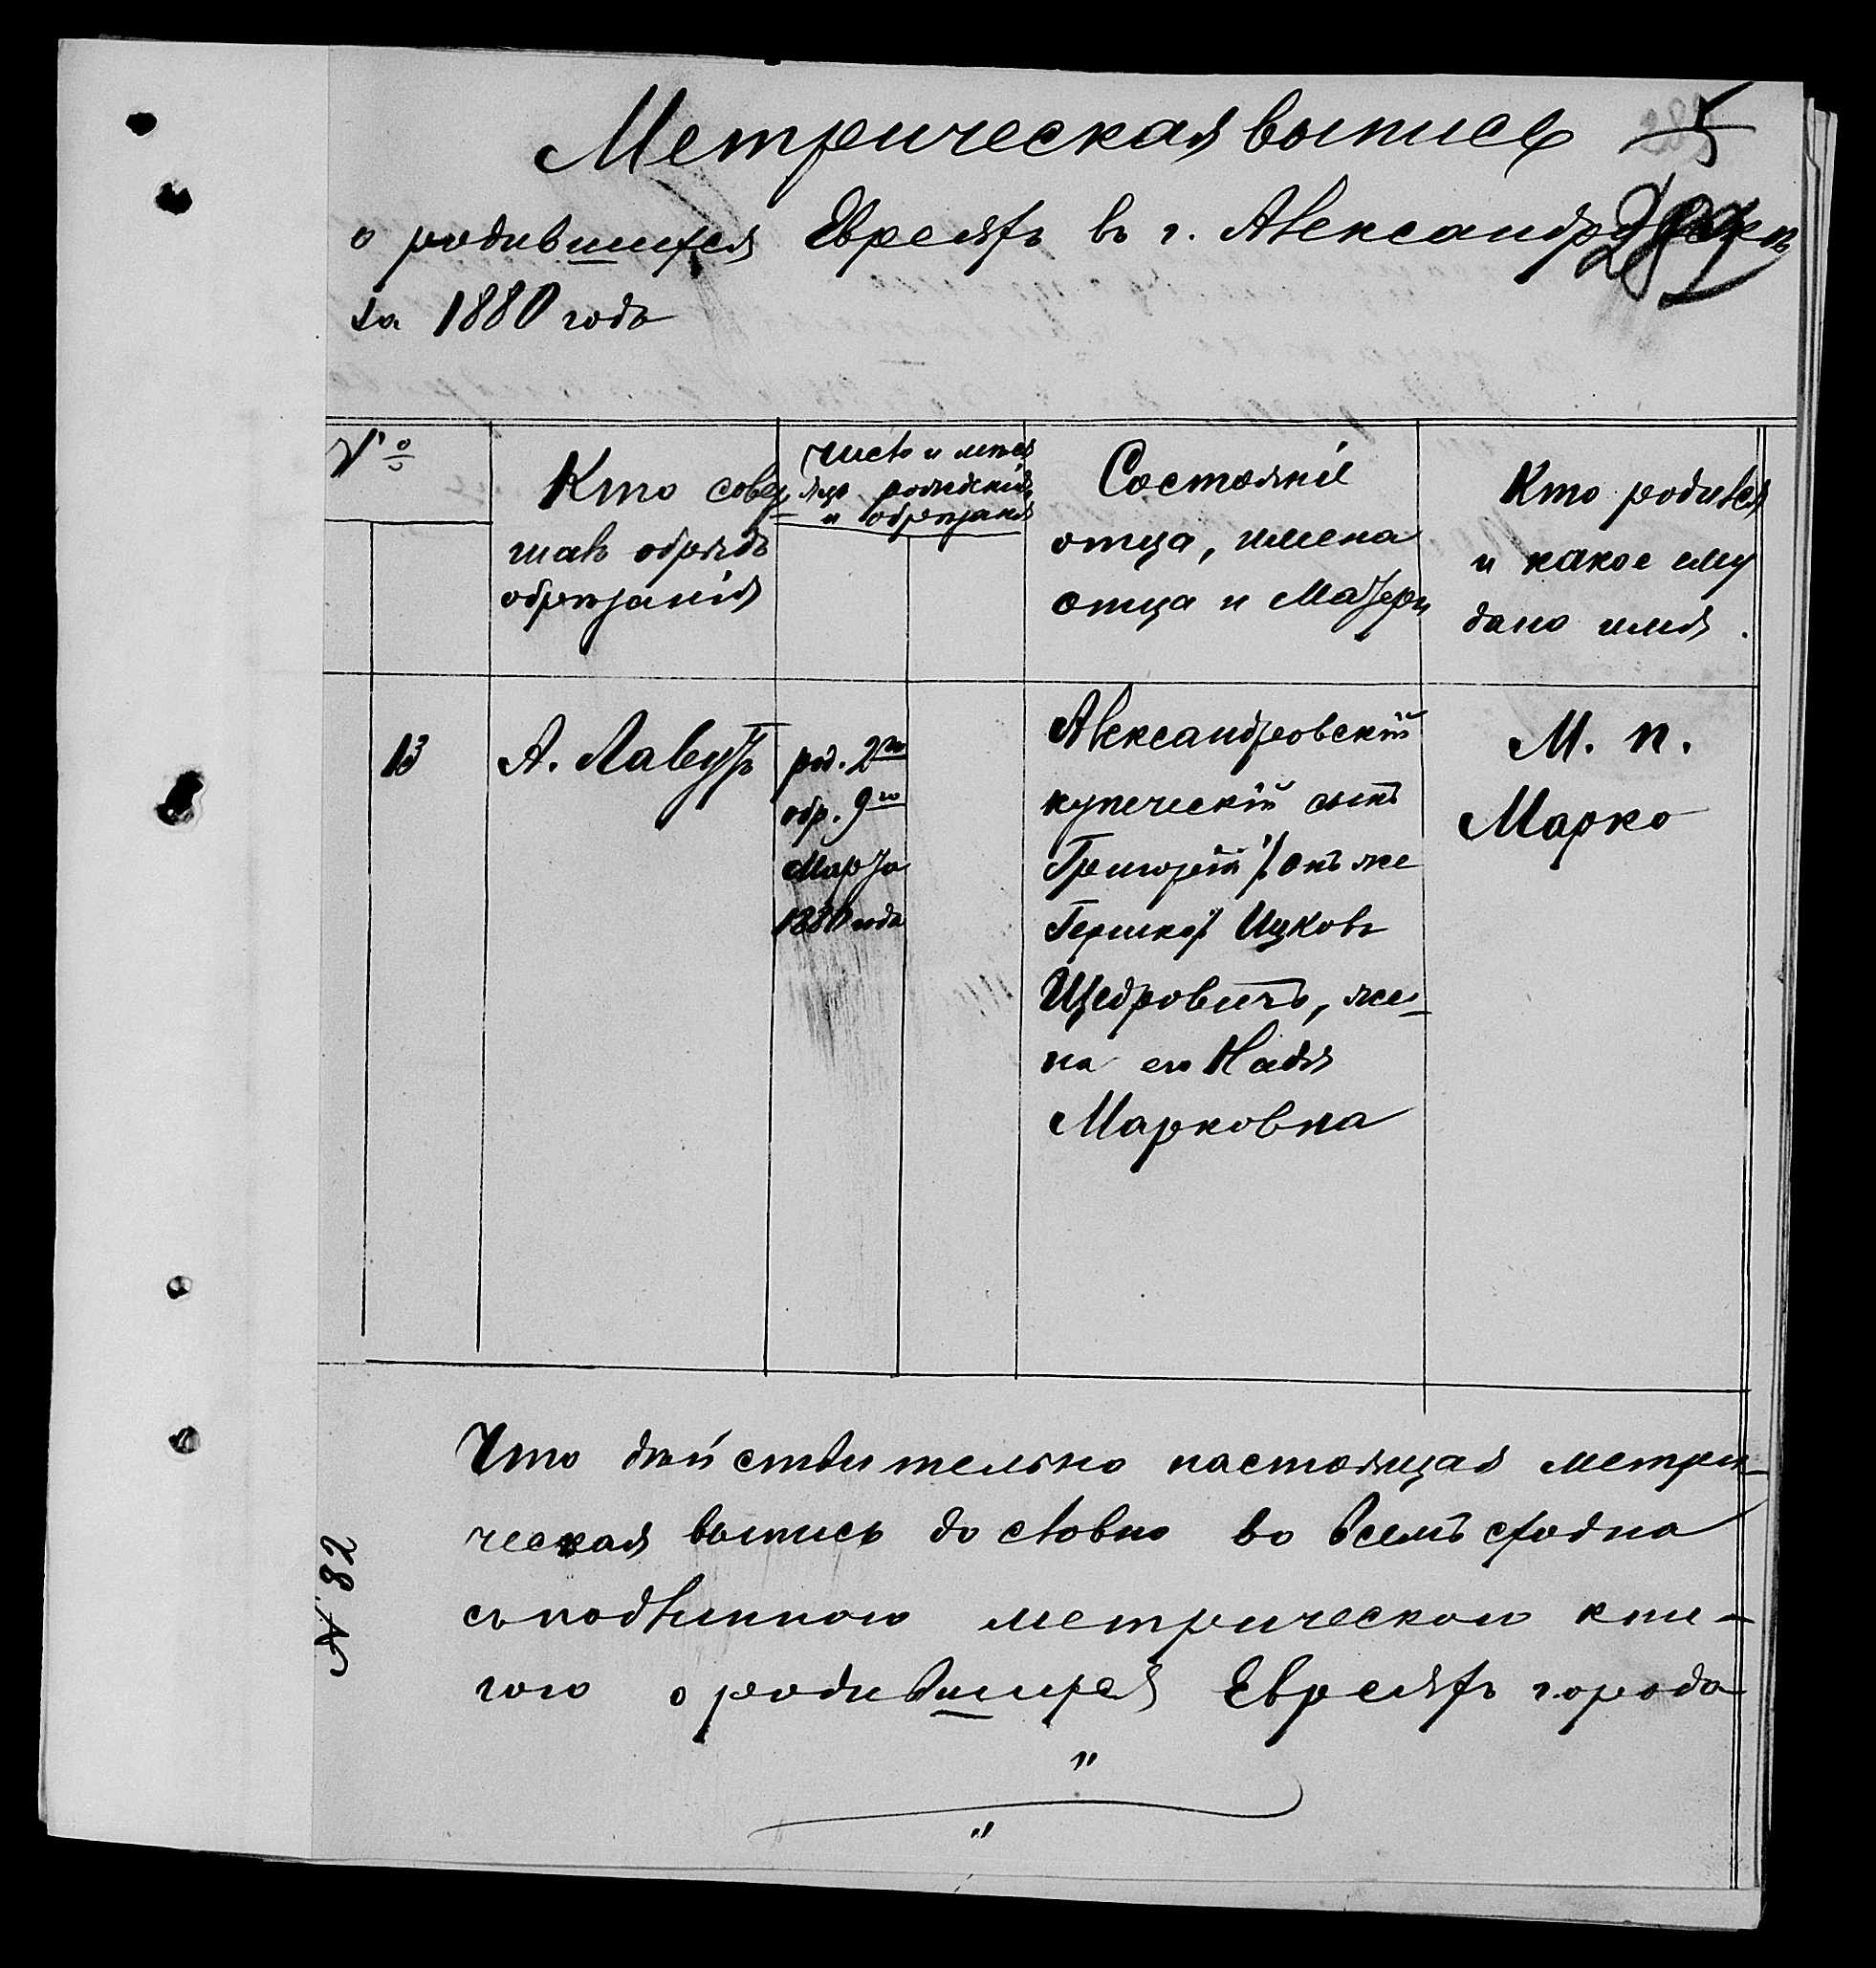 Метрическая выпись 5
о родившихся Евреяхъ въ г. Александровскѣ
за 1880 годъ
№
Кто совер-
шалъ обрядъ
обрѣзанія
Число и мѣся
яцъ рожденія
и обрѣзанія
Состояніе
отца, имена
отца и Матери
Кто родился
и какое ему
дано имя.
13
А. Лавутъ
род. 2го
обр. 9го
Марта
1880 года
Александровскій
купеческій сынъ
Григорій /: онъ же
Гершко :/ Ицковъ
Щедровичъ, же-
на его Надя
Марковна
М. п.
Марко
Что дѣйствительно настоящая метри-
ческая выпись дословно во всемъ сходна
съ подлинною метрическою кни-
гою о родившихся Евреяхъ города
№ 82